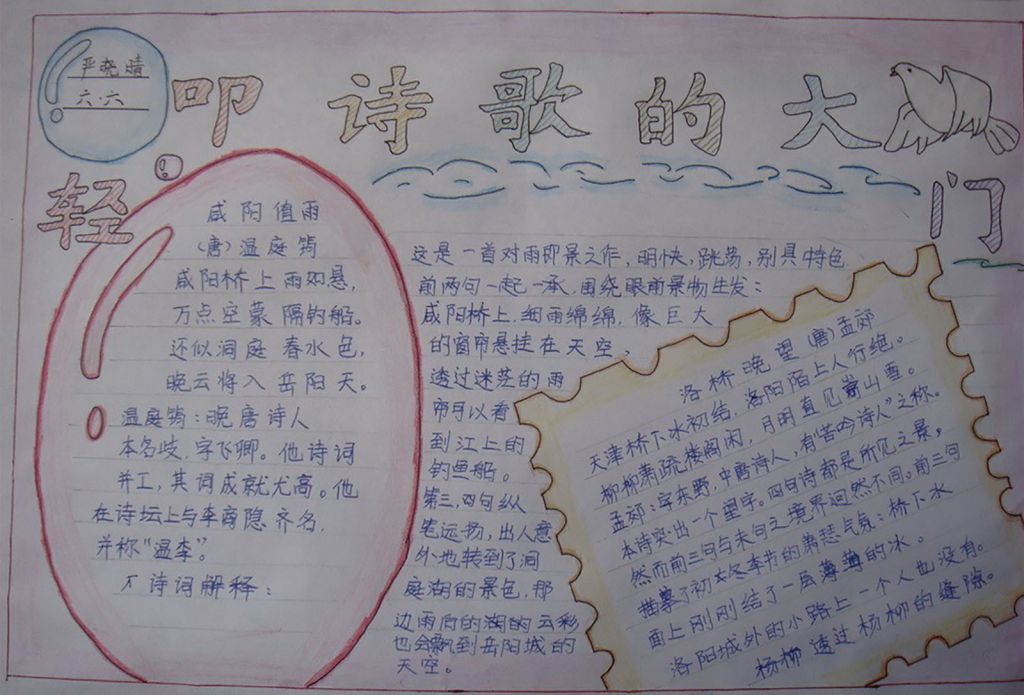 严晓晴
六.六
轻叩诗歌的大门
咸阳值雨
(唐)温庭筠
咸阳桥上雨如悬,
万点空蒙隔钓船。
还似洞庭春水色,
晚云将入岳阳天。
温庭筠:晚唐诗人
本名岐,字飞卿。他诗词
并工,其词成就尤高。他
在诗坛上与李商隐齐名,
并称“温李”。
诗词解释:
这是一首对雨即景之作,明快,跳荡,别具特色.
前两句一起一承,围绕眼前景物生发:
咸阳桥上,细雨绵绵,像巨大
的窗帘悬挂在天空、
透过迷茫的雨
帘可以看
到江上的
钓鱼船。
第三,四句纵
笔远扬,出人意
外地转到了洞
庭湖的景色,那
边雨后的湖的云彩
也会飘到岳阳城的
天空。
洛桥晚望(唐)孟郊
天津桥下冰初结,洛阳陌上人行绝。
柳柳萧疏楼阁闲,月明直见嵩山雪。
孟郊:字东野,中唐诗人,有“苦吟诗人”之称。
本诗突出一个望字。四句诗都是所见之景。
然而前三句与末句之境界迥然不同。前三句
描摹了初冬季节的萧瑟气氛:桥下水
面上刚刚结了一层薄薄的冰。
洛阳城外的小路上一个人也没有。
杨柳透过杨柳的缝隙。